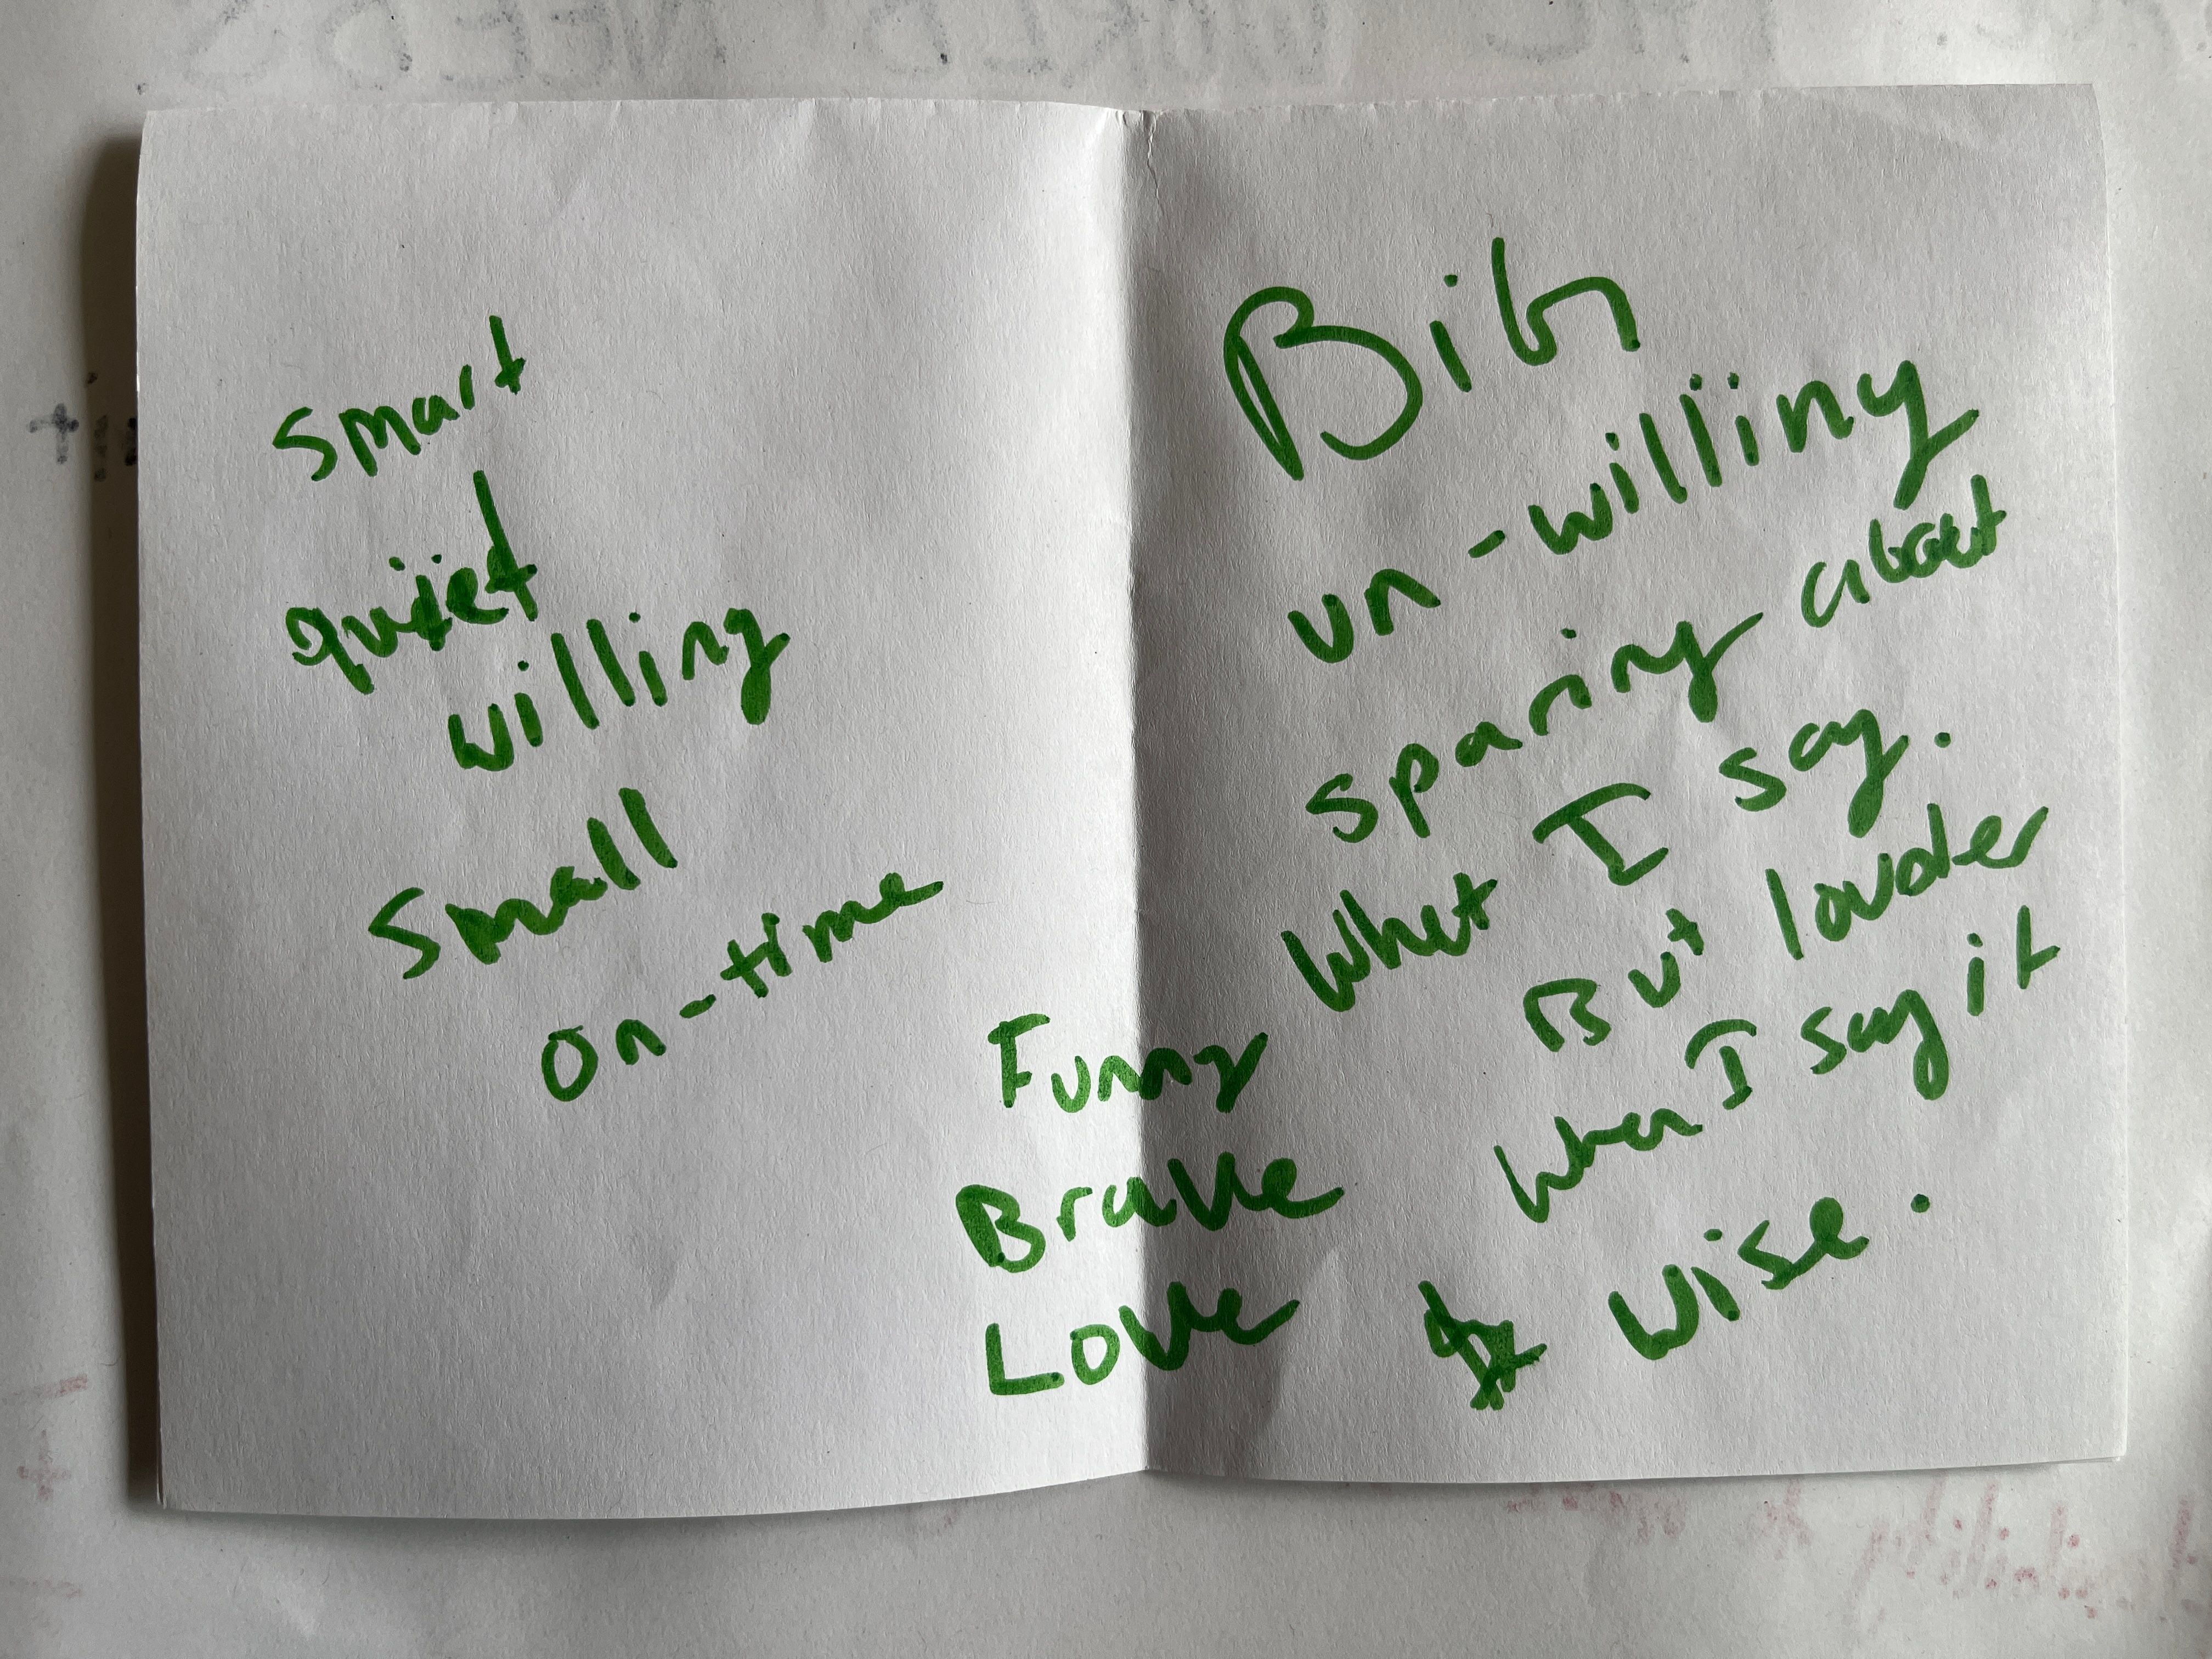 smart
quiet
willing
small
on-time
Funny
Brave
Love
BiG
un-willing
sparing about
what I say.
But louder
when I say it
& wise.